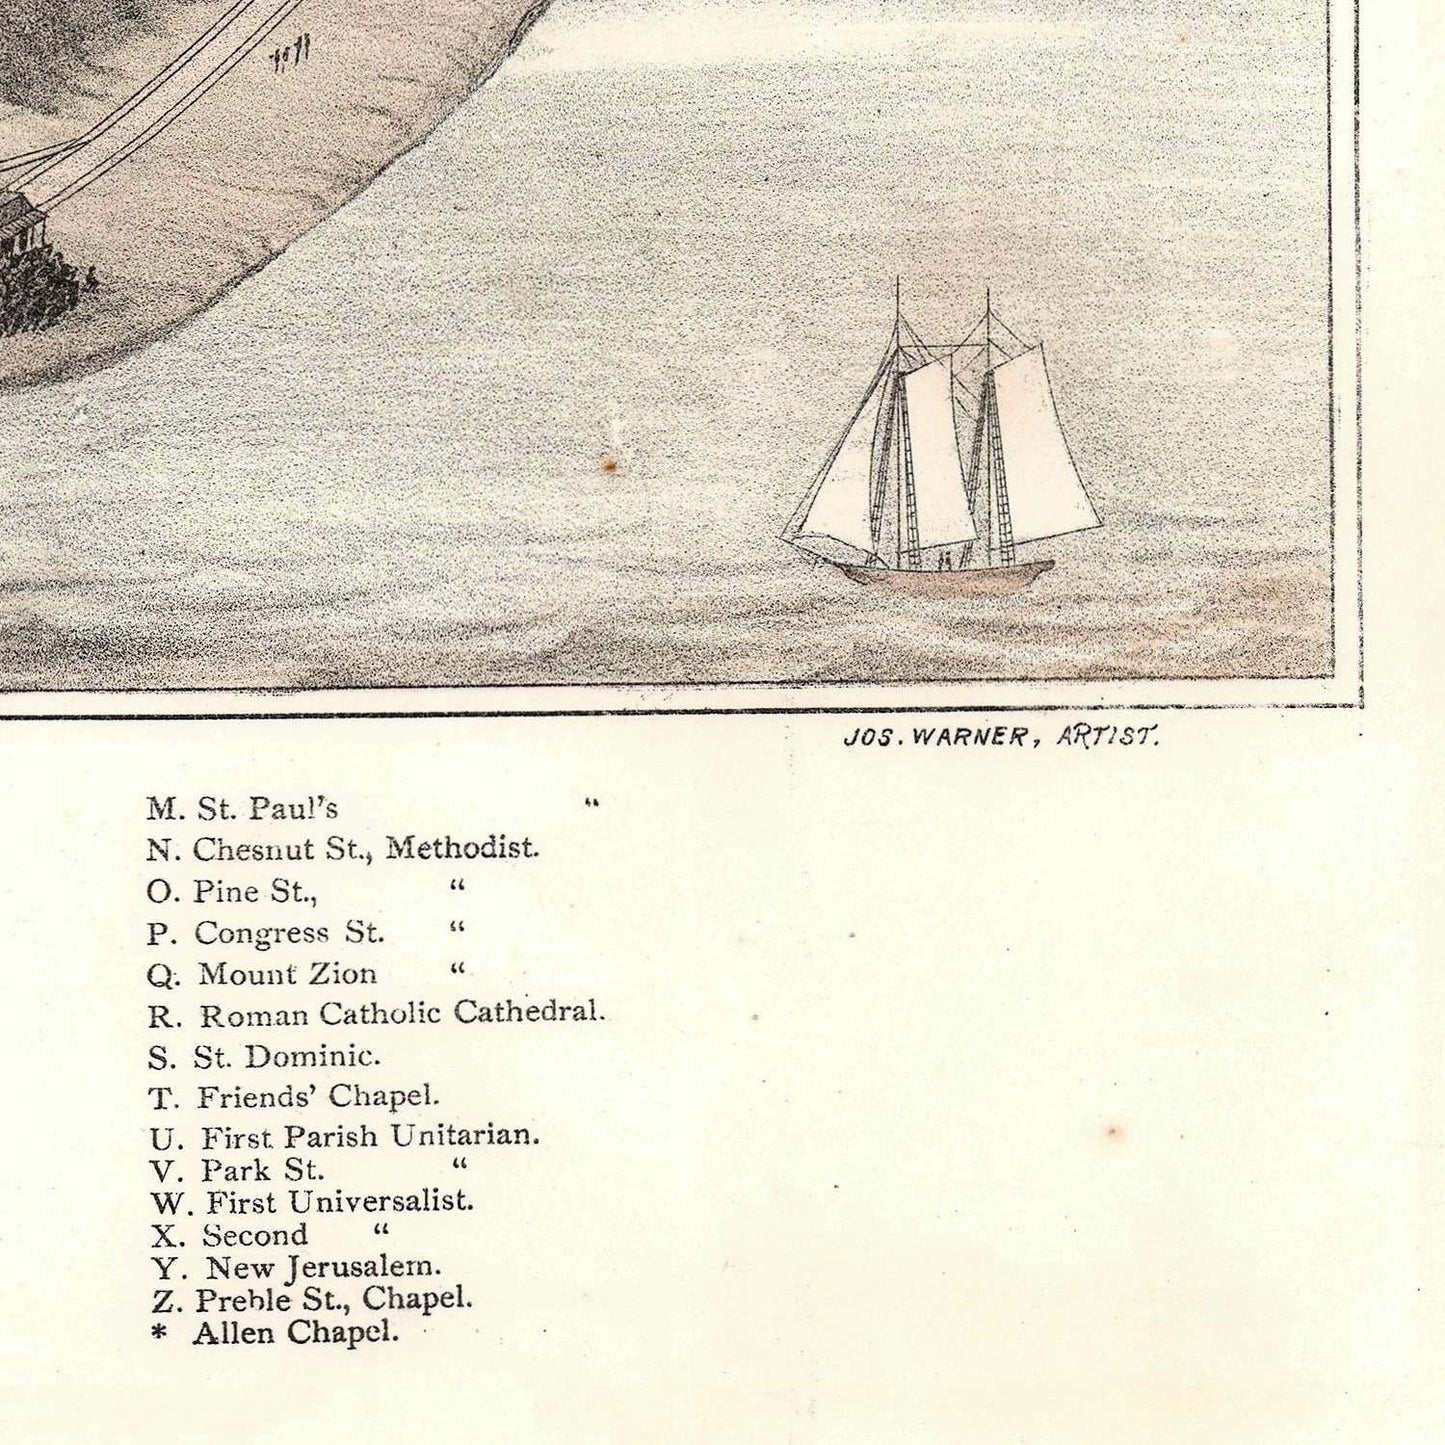 JOS. WARNER, ARTIST.
M. St. Paul's “
N. Chesnut St., Methodist.
O. Pine St., “
P. Congress St. “
Q. Mount Zion “
R. Roman Catholic Cathedral.
S. St. Dominic.
T. Friends' Chapel.
U. First Parish Unitarian.
V. Park St. “
W. First Universalist.
X. Second “
Y. New Jerusalem.
Z. Preble St., Chapel.
* Allen Chapel.